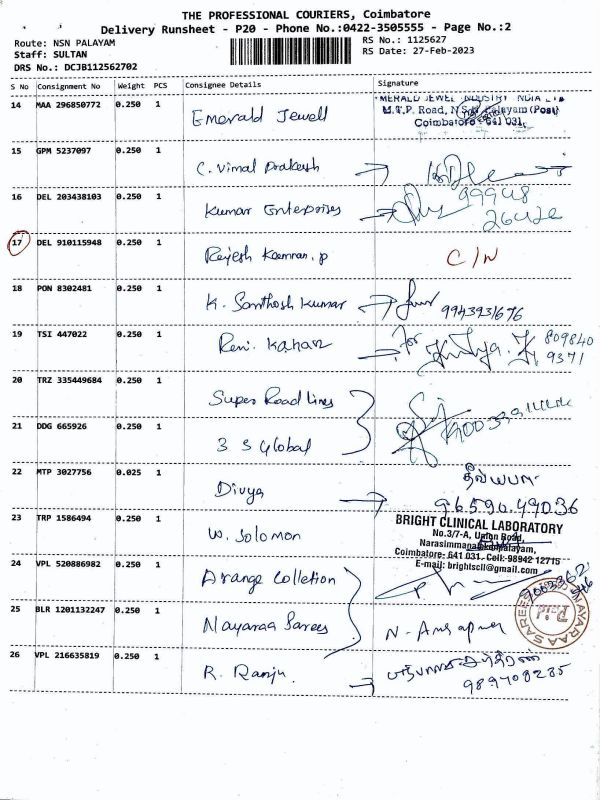 THE PROFESSIONAL COURIERS, Coimbatore
Delivery Runsheet - P20 - Phone No.:0422-3505555 - Page No.:2
Route: NSN PALAYAM
RS No.: 1125627
Staff: SULTAN
RS Date: 27-Feb-2023
DRS No.: DCJB112562702
S No Consignment No Weight PCS Consignee Details Signature
14 MAA 296850772 0.250 1 Emerald Jewell
MERALD JEWEL INDUSTRY INDIA LTD
M.T.P. Road, N.S.N. Palayam (Post)
Coimbatore - 641 031.
15 GPM 5237097 0.250 1 C. Vimal Prakash
16 DEL 203438103 0.250 1 Kumar Enterprises
17 DEL 910115948 0.250 1 C/N
18 PON 8302481 0.250 1 K. Santhosh Kumar 9943931676
19 TSI 447022 0.250 1 for 809840
9371
20 TRZ 335449684 0.250 1 Super Road lines
21 DDG 665926 0.250 1 3 S Global
22 MTP 3027756 0.025 1 Divya
96590 49036
23 TRP 1586494 0.250 1 W. Solomon
BRIGHT CLINICAL LABORATORY
No.3/7-A, Union Road,
Narasimmanaickenpalayam,
Coimbatore- 641 031- Cell- 98942 12715
E-mail: brightscll@gmail.com
24 VPL 520886982 0.250 1 Arange Colletion
25 BLR 1201132247 0.250 1 Nayaraa Sarees
26 VPL 216635819 0.250 1 R. Ranju